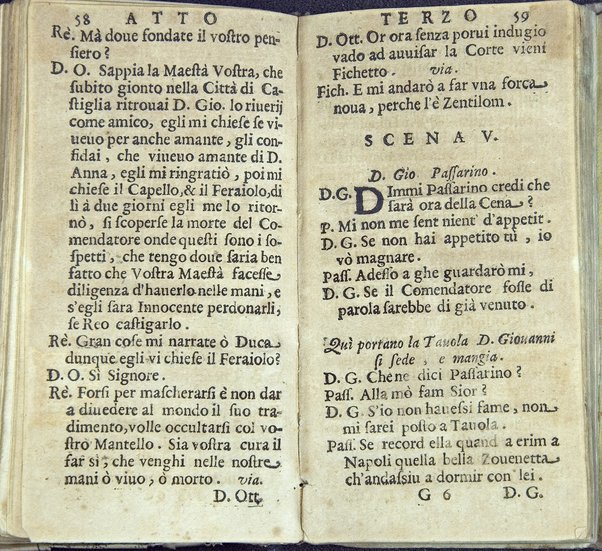 58 ATTO
Rè. Mà doue fondate il vostro pen-
siero?
D. O. Sappia la Maestà Vostra, che
subito gionto nella Città di Ca-
stiglia ritrouai D. Gio. lo riuerij
come amico, egli mi chiese se vi-
ueuo per anche amante, gli con-
fidai, che viueuo amante di D.
Anna, egli mi ringratiò, poi mi
chiese il Capello, & il Feraiolo, di
lì à due giorni egli me lo ritor-
nò, si scoperse la morte del Co-
mendatore onde questi sono i so-
spetti, che tengo doue saria ben
fatto che Vostra Maestà facesse
diligenza d'hauerlo nelle mani, e
s'egli sara Innocente perdonarli,
se Reo castigarlo.
Rè. Gran cose mi narrate ò Duca
dunque egli vi chiese il Feraiolo?
D. O. Sì Signore.
Rè. Forsi per mascherarsi è non dar
a diuedere al mondo il suo tra-
dimento, volle occultarsi col vo-
stro Mantello. Sia vostra cura il
far sì, che venghi nelle nostre
mani ò viuo, ò morto. via.
D. Ott.
TERZO 59
D. Ott. Or ora senza porui indugio
vado ad auuisar la Corte vieni
Fichetto. via.
Fich. E mi andarò a far vna forca
noua, perche l'è Zentilom.
SCENA V.
D. Gio. Passarino.
D.G. DImmi Passarino credi che
sarà ora della Cena?
P. Mi non me sent nient' d'appetit.
D. G. Se non hai appetito tù, io
vò magnare.
Pass. Adesso a ghe guardarò mi,
D. G. Se il Comendatore fosse di
parola sarebbe di già venuto.
Quì portano la Tauola D. Giouanni
si sede, e mangia.
D. G. Che ne dici Passarino?
Pass. Alla mò fam Sior?
D. G. S'io non hauessi fame, non
mi sarei posto a Tauola.
Pass. Se record ella quand a erim a
Napoli quella bella Zouenetta
ch'andassiu a dormir con lei.
G 6 D. G.